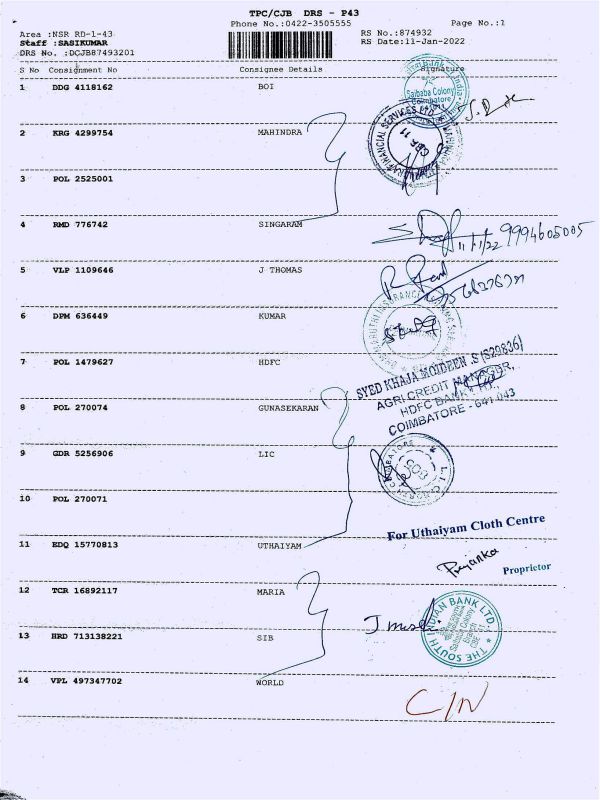 TPC/CJB DRS - P43
Phone No.:0422-3505555
Page No.:1
Area :NSR RD-1-43
RS No.:874932
Staff :SASIKUMAR
RS Date:11-Jan-2022
DRS No. :DCJB87493201
S No Consignment No Consignee Details Signature
1 DDG 4118162 BOI
Saibaba Colony
Coimbatore
2 KRG 4299754 MAHINDRA
3 POL 2525001
4 RMD 776742 SINGARAM
11/1/22 9994605005
5 VLP 1109646 J THOMAS
6 DPM 636449 KUMAR
7 POL 1479627 HDFC
SYED KHAJA MOIDEEN .S (S29836)
AGRI CREDIT MANAGER,
HDFC BANK LTD.,
COIMBATORE - 641 043
8 POL 270074 GUNASEKARAN
9 GDR 5256906 LIC
10 POL 270071
For Uthaiyam Cloth Centre
11 EDQ 15770813 UTHAIYAM
Priyanka
Proprietor
12 TCR 16892117 MARIA
THE SOUTH INDIAN BANK LTD
Saibaba Colony
Branch
13 HRD 713138221 SIB
14 VPL 497347702 WORLD
C/N